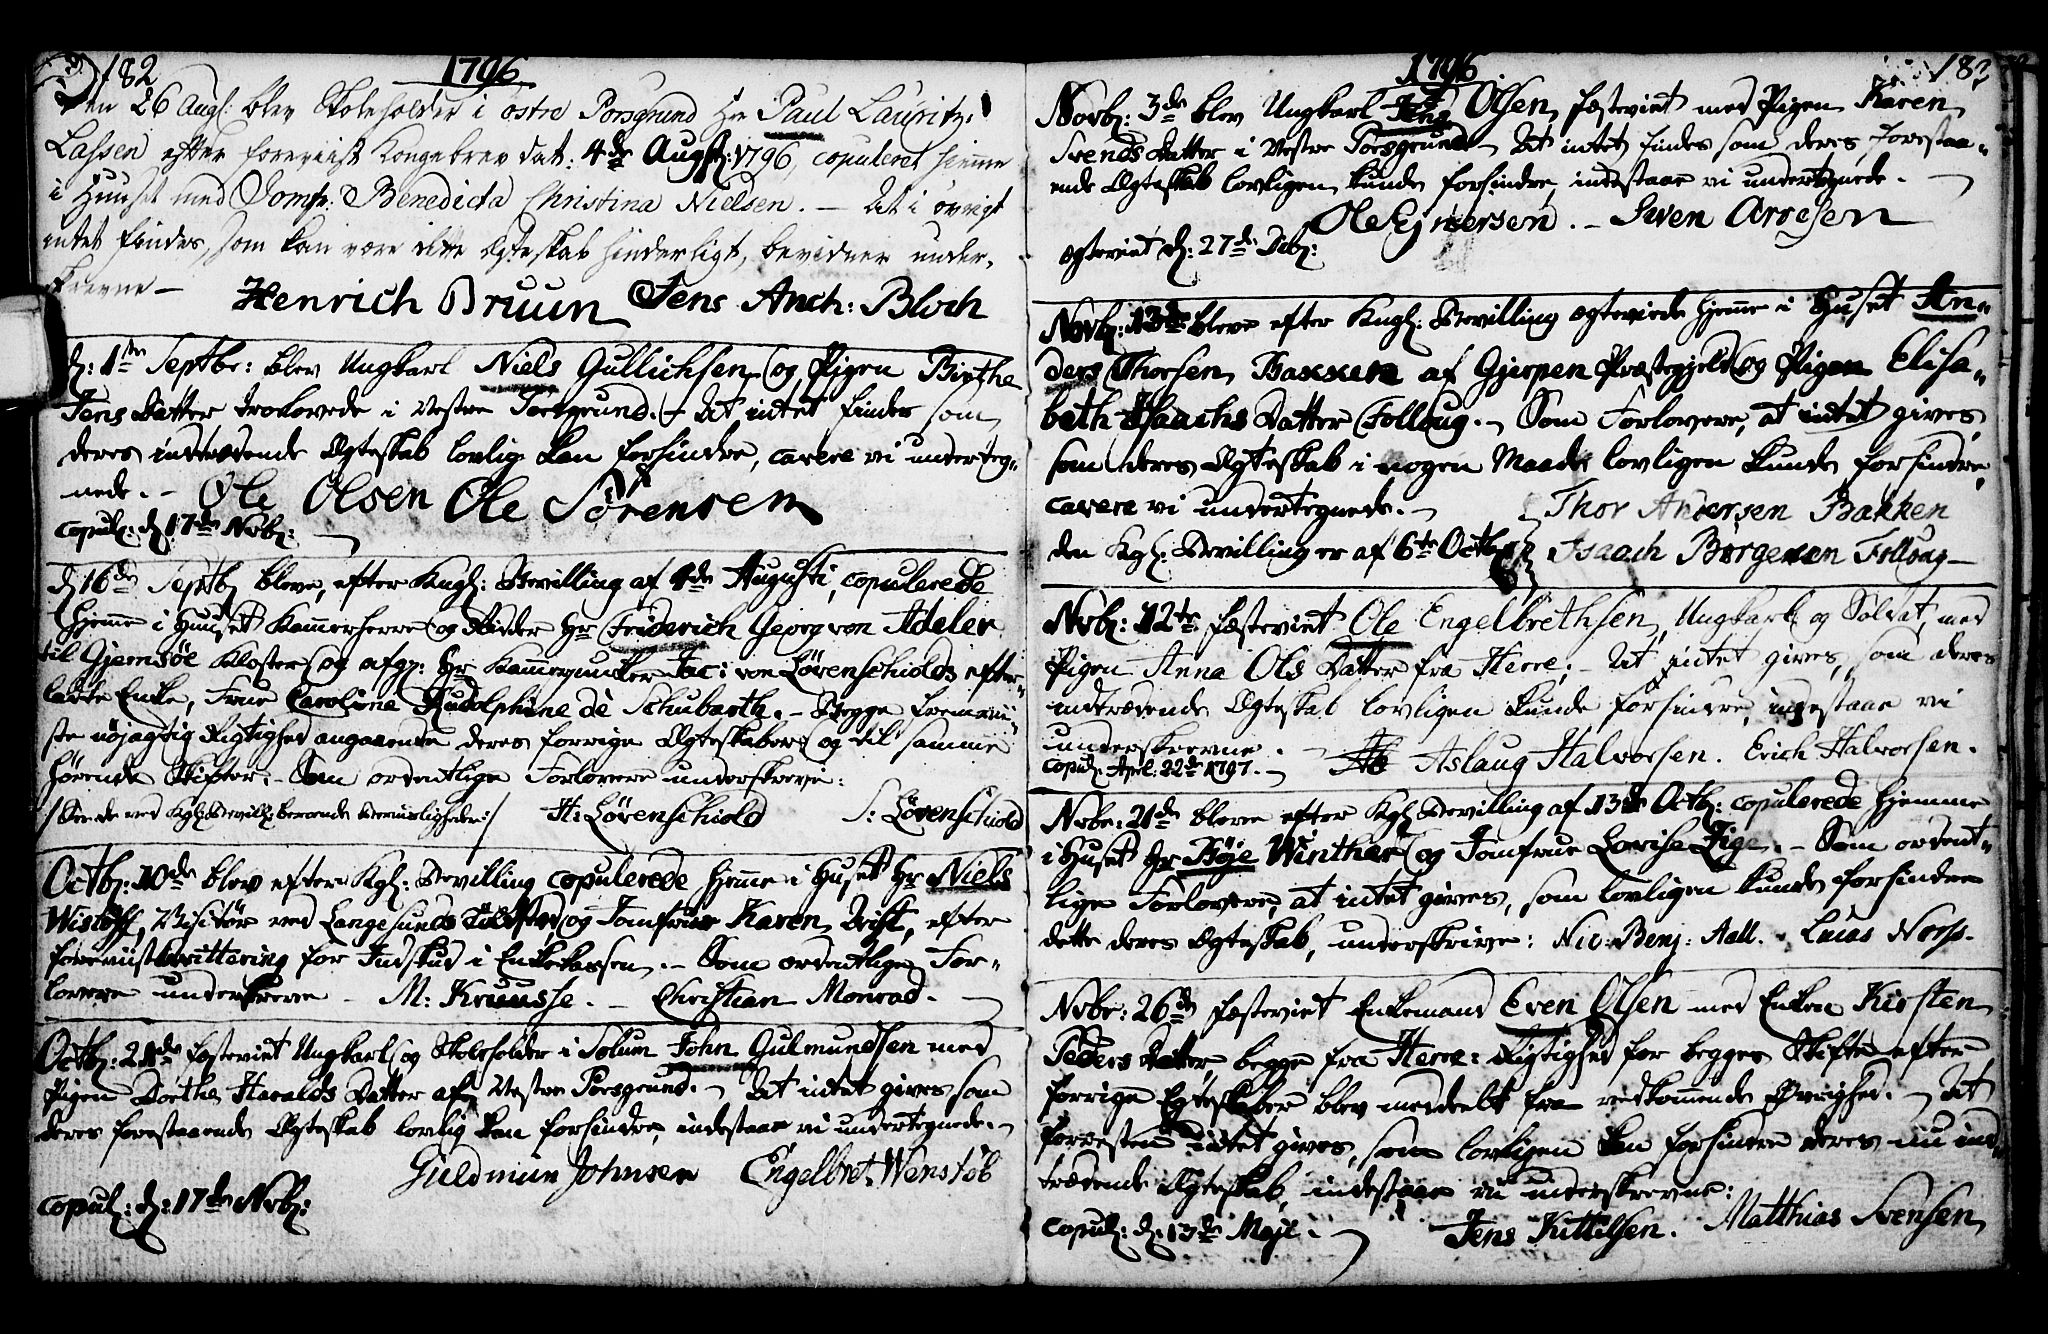 182
1796
Den 26 Augl: blev Skoleholder i østre Porsgrund Hr Paul Lauritz
Lassen efter foreviist Kongebrev dat: 4de Augst: 1796, copuleret hiemme
i Huuset med Jomfr: Benedicta Christina Nielsen. — At i øvrigt
intet findes, som kan være dette Ægteskab hinderligt, bevidner under-
skrevne —
Henrich Bruun Jens Anch: Bloch
d: 1ste Septbr: blev Ungkarl Niels Gullichsen og Pigen Birthe
Jens Datter trolovede i Vestre Porsgrund. — At intet findes som
deres indtrædende Ægteskab lovlig kan forhindre, cavere vi underteg-
nede. — Ole Olsen Ole Sörensen
copul: d 17de Novbr:
d 16de Septb bleve, efter Kongl: Bevilling af 4de Augusti, copulerede
hjemme i Huuset Kammerherre og Ridder Hr Friderich Georg von Adeler
til Gjemsöe Kloster og afgn: Hr Kammerjunker Jac: von Lövenschiolds efter-
ladte Enke, Frue Caroline Rudolphine de Schubarth. — Begge fremvii-
ste nöjagtig Rigtighed angaaende deres forrige Ægteskaber og til samme
hörende Skifter. — Som ordentlige Forlovere underskreve:
H: Lövenschiold S: Lövenschiold
Octb: 10de blev efter Kgl: Bevilling copulerede hjemme i Huset Hr Niels
Wislöff, Visiteur ved Langesunds Toldsted, og Jomfrue Karen Brist, efter
foreviist Qvittering for Indskud i Enkekassen. — Som ordentlige For-
lovere underskreve — M: Kruusse. — Christian Monrad.
Octb: 21de fæsteviet Ungkarl og Skoleholder i Solum John Gulmundsen med
Pigen Dorthe Haralds Datter af Vestre Porsgrund. — At intet gives som
deres forestaaende Ægteskab lovlig kan forhindre, indestaae vi undertegnede. —
Guldmun Johnsen Engelbret Wenstöb
copul: d: 17de Novb:
1796
183
Novb: 3de blev Ungkarl Jens Olsen fæsteviet med Pigen Karen
Svends Datter i Vestre Porsgrund — At intet findes som deres forestaa-
ende Ægteskab lovligen kunde forhindre, indestaae vi undertegnede. —
Ole Ejnersen. — Swen Aresen
Ægteviet d: 27de Decb:
Novb: 13de bleve efter Kongl: Bevilling ægteviede hjemme i Huset An-
ders Thorsen Bakken af Gjerpen Præstegjeld og Pigen Elisa-
beth Isaachs Datter Follaug. — Som Forlovere, at intet gives,
som deres Ægteskab i nogen Maade lovligen kunde forhindre
cavere vi undertegnede. — Thor Andersen Bakken
den Kgl: Bevilling er af 6te Octb: Isaach Börgesen Follaug —
Novb: 12te fæsteviet Ole Engelbrethsen, Ungkarl og Soldat, med
Pigen Anna Ols Datter fra Herre. — At intet gives, som deres
indtrædende Ægteskab lovligen kunde forhindre, indestaae vi
underskrevne. — Aslaug Halvorsen. Erich Halvorsen.
copul: Apr: 22de 1797. —
Novbr: 21de bleve efter Kgl Bevilling af 13de Octb: copulerede hjemme
i Huset Hr Böje Winther og Jomfrue Lovise Zige. — Som ordent-
lige Forlovere, at intet gives, som lovligen kunde forhindre
dette deres Ægteskab, underskrive: Nic: Benj: Aall. Lucas Norp.
Novbr: 26de fæsteviet Enkemand Even Olsen med Enken Kirsten
Peders Datter, begge fra Herre: Rigtighed for begges Skifte efter
forrige Egteskaber blev meddeelt fra vedkommende Øvrighed. — At
forresten intet gives, som lovligen kan forhindre deres nu ind-
trædende Ægteskab, indestaae vi underskrevne:
copul: d: 13de Maji. — Jens Kittilsen. Matthias Svensen